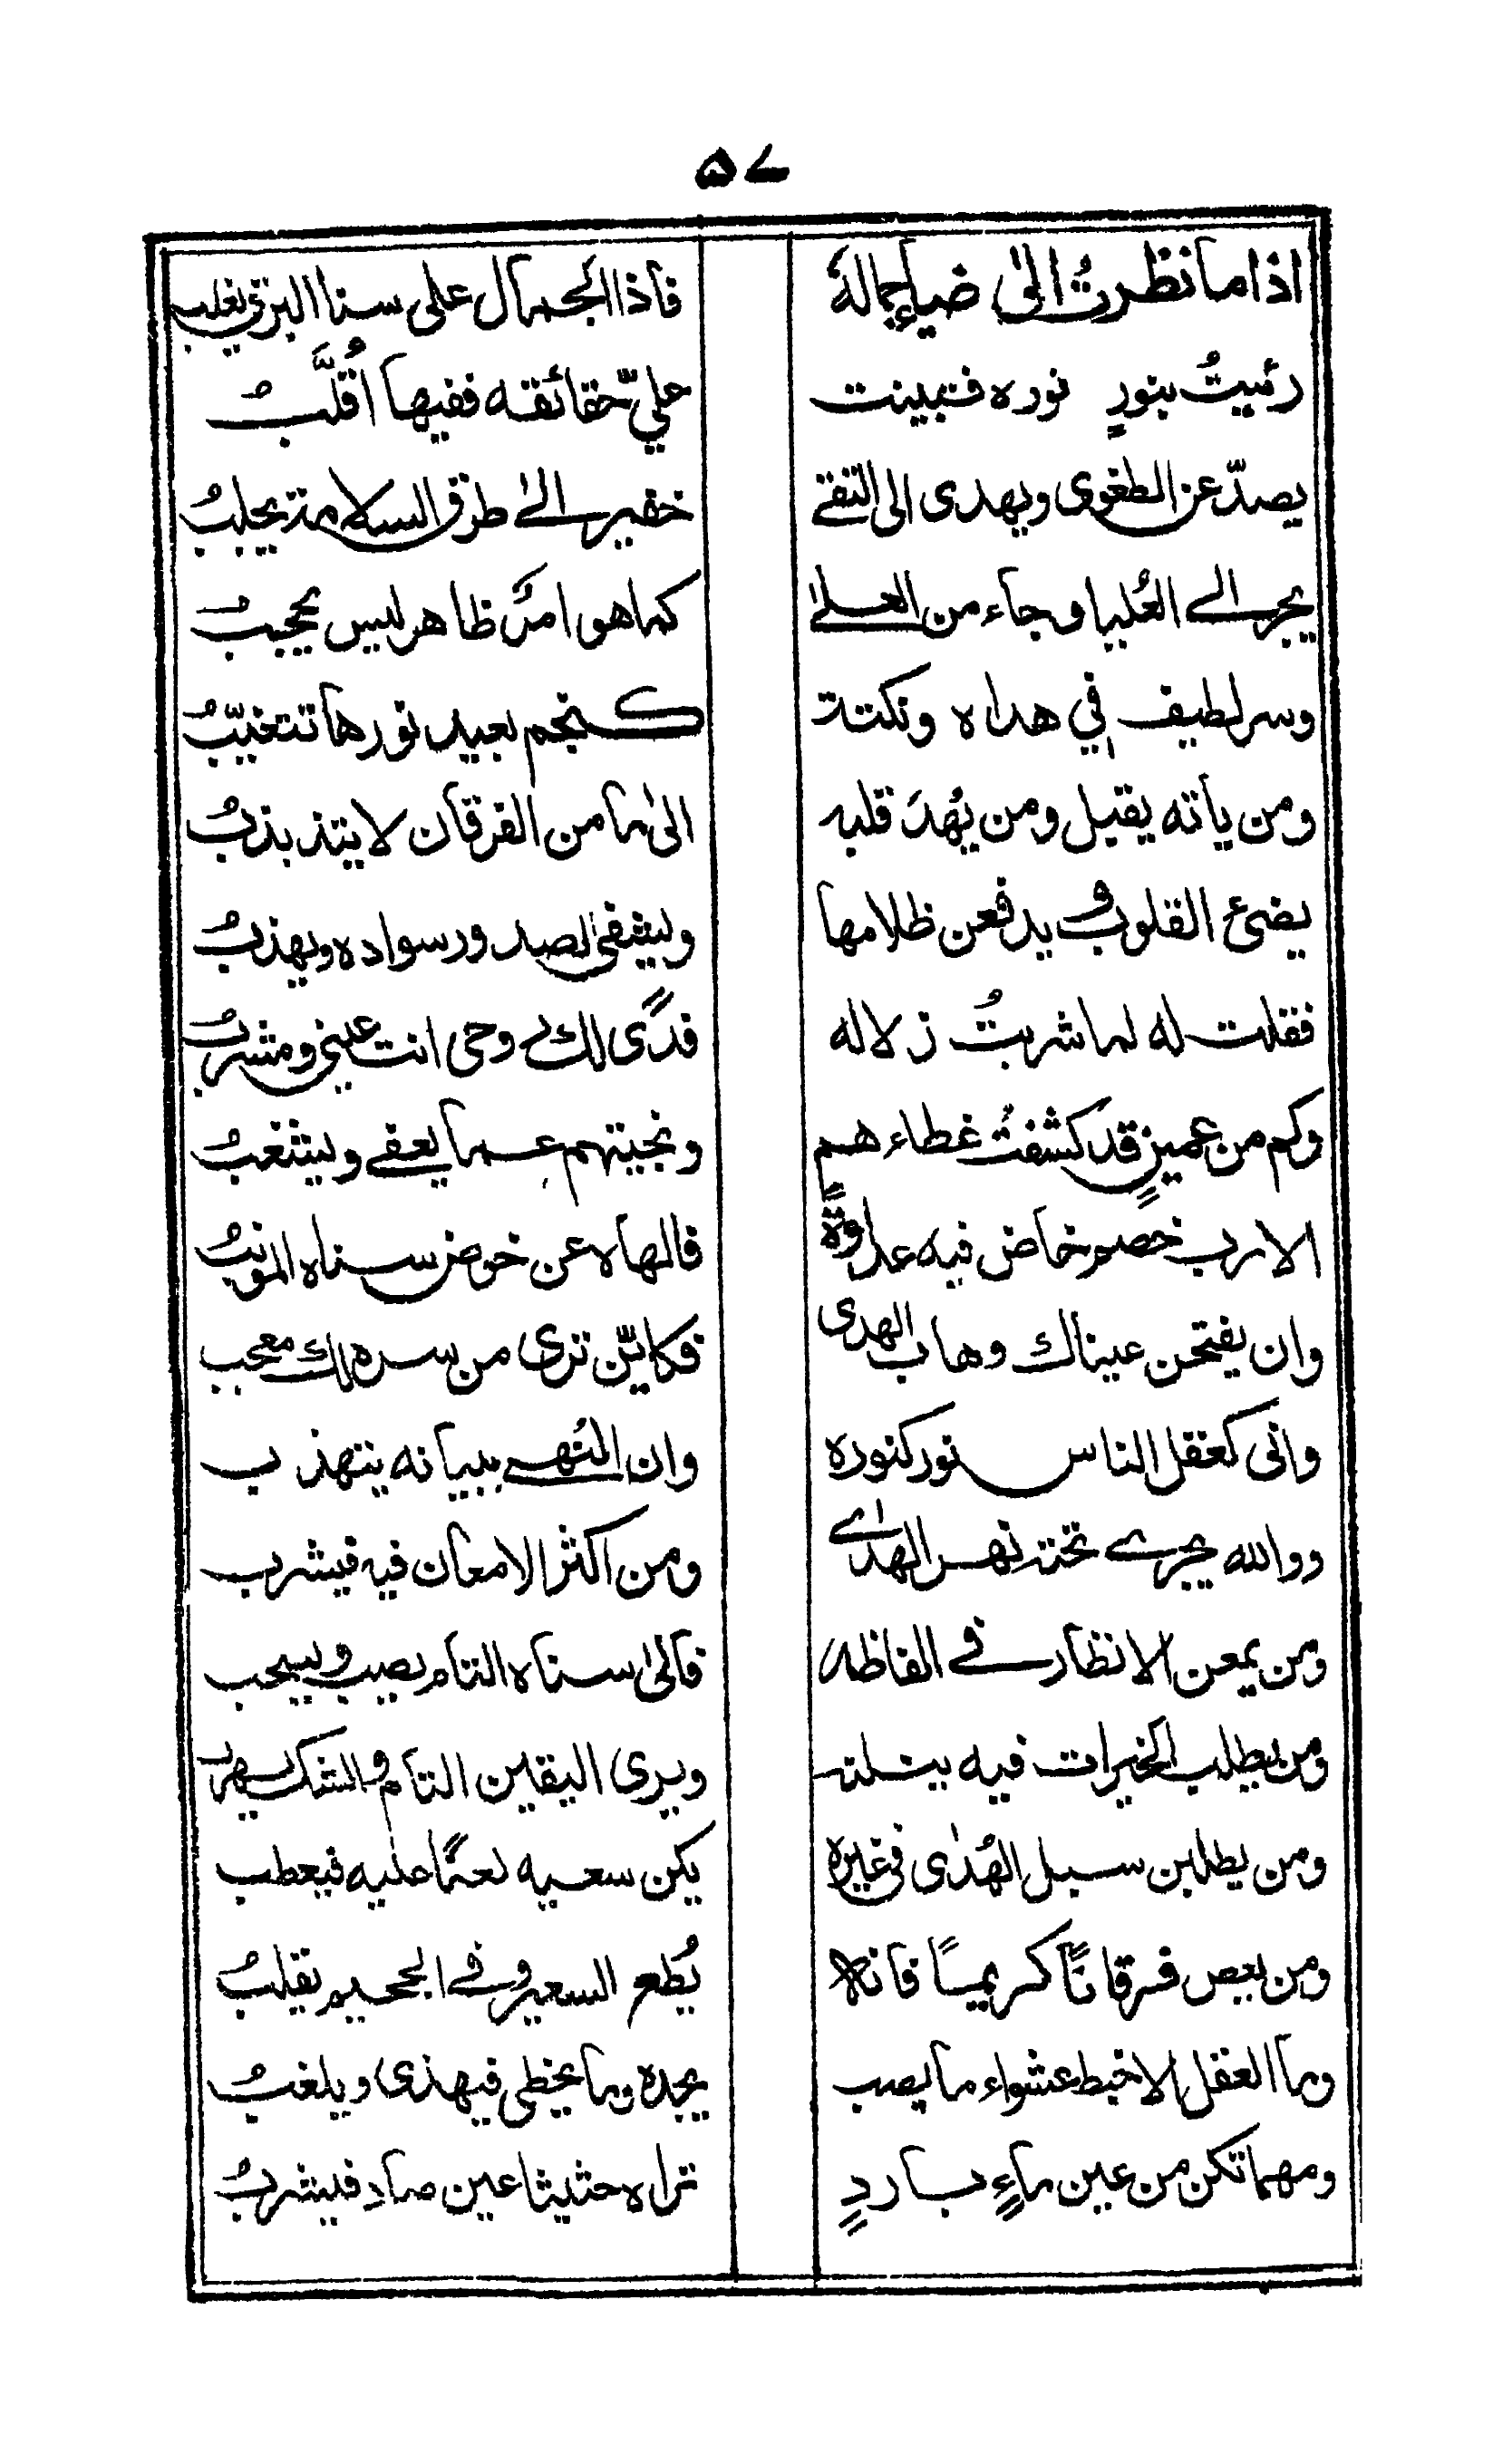 ۵۷
اذا ما نظرتُ الیٰ ضیاءِ جمالهٖ
فاذا الجمال علی سنا البرق یغلب
رئیتُ بنورٍ نوره فتبینت
علیّ حقائقه ففیها اُقلَّبُ
یصدّ عن الطغوی ویهدی الی التقے
خفیر الیٰ طرق السلامة یجلبُ
یجرّ الے العُلیا وجاء من العلیٰ
کما هو امرٌ ظاهر لیس یحجبُ
وسر لطیف في هداه ونکتة
کنجم بعید نورها تتغیّبُ
ومن یأته یقبل ومن یُهدَ قلبه
الیٰ مامن الفرقان لا یتذبذبُ
یضیءُ القلوب ویدفعن ظلامها
ویشفی الصدور سواده ویهذبُ
فقلت له لما شربتُ زلاله
فدًی لک روحی انت عینی ومشربُ
وکم من عمینٍ قد کشفتُ غطاءهم
ونجیتهم عما یعفی ویشغبُ
الا رب خصم خاض فیه عداوةً
فالهاه عن خوض سناه المؤنبُ
وان یفتحن عیناک وهاب الهدی
فکایّن تری من سره لک معجب
وانی کعقل الناس نور کنوره
وان النُهے ببیانه یتهذب
ووالله یجرے تحته نهر الهدٰے
ومن اکثر الامعان فیه فیشرب
ومن یمعن الانظار فے الفاظه
فالیٰ سناه التام یصبو ویسحب
ومن یطلب الخیرات فیه ینلنه
ویری الیقین التام والشک یهرب
ومن یطلبن سبل الهُدٰی فی غیره
یکن سعیه لعنًا علیه فیعطب
ومن یعص فرقانًا کریمًا فانه
یُطع السعیر وفے الجحیم یقلبُ
وما العقل الا خبط عشواء ما یصب
یجده وما یخطی فیهذی ویلغبُ
ومهما تکن من عین ماءٍ باردٍ
تراه حثیثا عین صادٍ فیشربُ